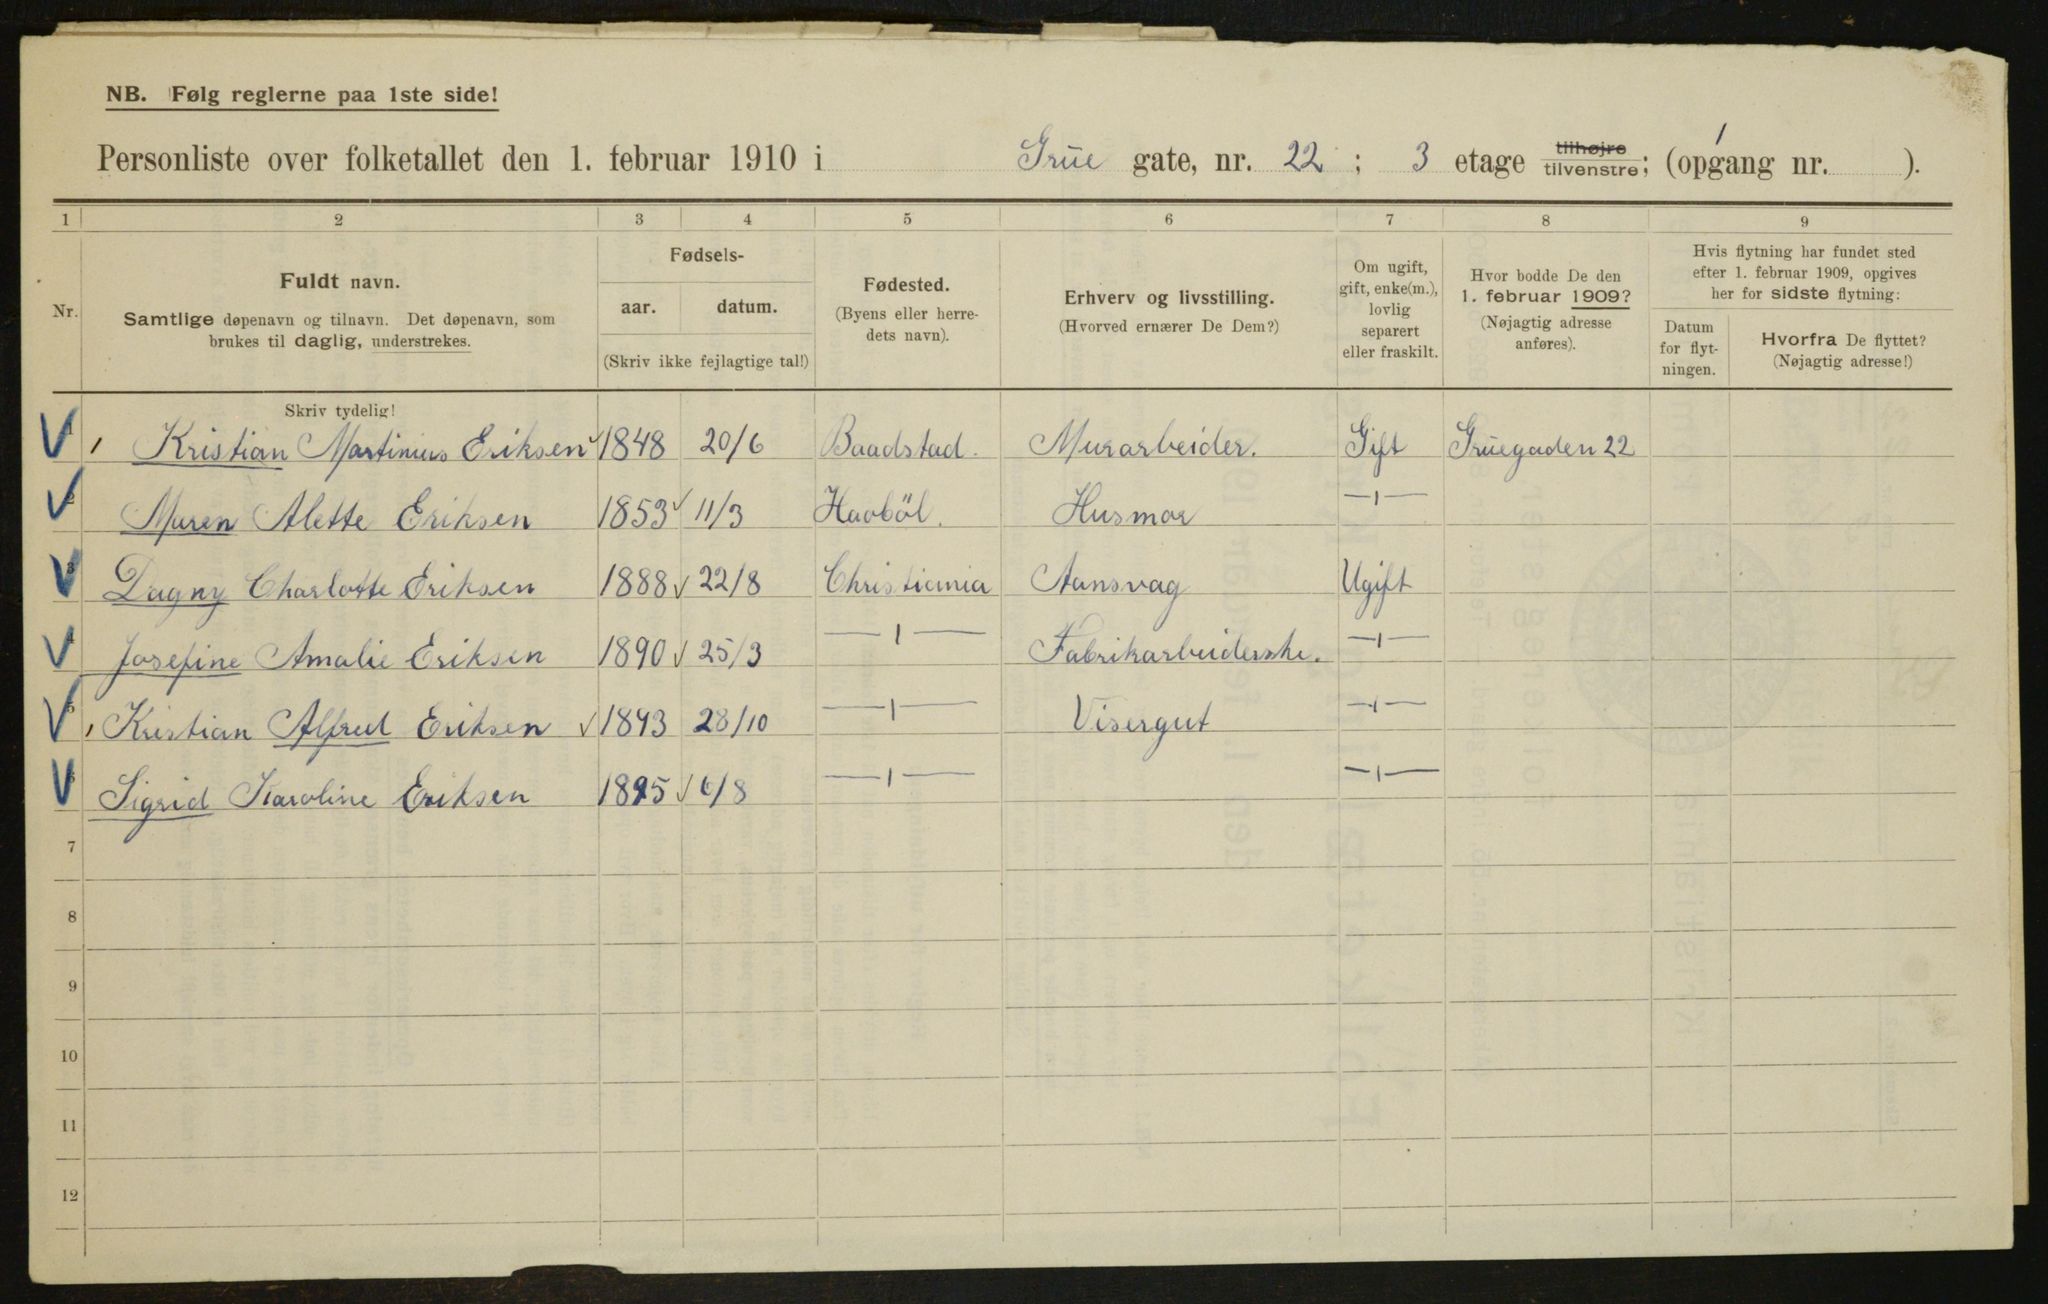 NB. Følg reglerne paa 1ste side!
Personliste over folketallet den 1. februar 1910 i Grüe gate, nr. 22 ; 3 etage tilhøjre tilvenstre; (opgang nr. 1 ).
1 2 3 4 5 6 7 8 9
Nr.
Fuldt navn.
Samtlige døpenavn og tilnavn. Det døpenavn, som
brukes til daglig, understrekes.
Fødsels-
aar. datum.
(Skriv ikke fejlagtige tal!)
Fødested.
(Byens eller herre-
dets navn).
Erhverv og livsstilling.
(Hvorved ernærer De Dem?)
Om ugift,
gift, enke(m.),
lovlig
separert
eller fraskilt.
Hvor bodde De den
1. februar 1909?
(Nøjagtig adresse
anføres).
Hvis flytning har fundet sted
efter 1. februar 1909, opgives
her for sidste flytning:
Datum
for flyt-
ningen.
Hvorfra De flyttet?
(Nøjagtig adresse!)
Skriv tydelig!
Kristian Martinius Eriksen 1848 20/6 Baadstad. Murarbeider. Gift Grüegaden 22
Maren Alette Eriksen 1853 11/3 Haoböl. Husmor —ı—
Dagny Charlotte Eriksen 1888 22/8 Christiania Aansvag Ugift
Josefine Amalie Eriksen 1890 25/3 —ı— Fabrikarbeiderske. —ı—
Kristian Alfred Eriksen 1893 28/10 —ı— Visergut —ı—
Sigrid Karoline Eriksen 1895 6/8 —ı— —ı—
7
8
9
10
11
12